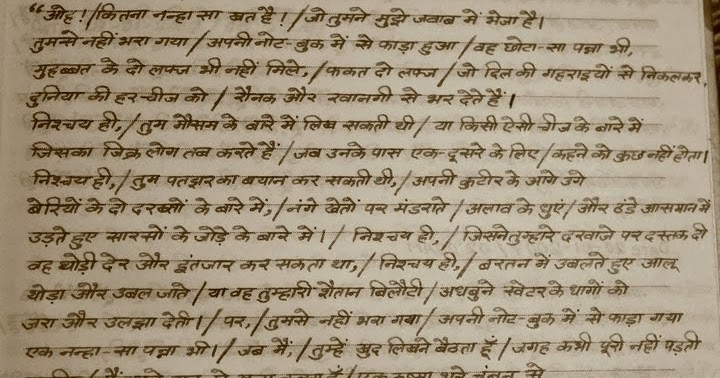 “ओह! / कितना नन्हा सा खत है! / जो तुमने मुझे जवाब में भेजा है।
तुमसे नहीं भरा गया / अपनी नोट-बुक में से फाड़ा हुआ / वह छोटा-सा पन्ना भी,
मुहब्बत के दो लफ्ज भी नहीं मिले, / फकत दो लफ्ज / जो दिल की गहराइयों से निकलकर,
दुनिया की हर चीज को / रौनक और रवानगी से भर देते हैं।
निश्चय ही, / तुम मौसम के बारे में लिख सकती थी / या किसी ऐसी चीज के बारे में
जिसका जिक्र लोग तब करते हैं / जब उनके पास एक-दूसरे के लिए / कहने को कुछ नहीं होता।
निश्चय ही, / तुम पतझर का बयान कर सकती थी, / अपनी कुटीर के आगे उगे
बेरियों के दो दरख्तों के बारे में, / नंगे खेतों पर मंडराते / अलाव के धुएं / और ठंडे आसमान में
उड़ते हुए सारसों के जोड़े के बारे में। / निश्चय ही, / जिसने तुम्हारे दरवाजे पर दस्तक दी
वह थोड़ी देर और इंतजार कर सकता था, / निश्चय ही, / बरतन में उबलते हुए आलू
थोड़ा और उबल जाते / या वह तुम्हारी शैतान बिलौटी / अधबुने स्वेटर के धागों को
जरा और उलझा देती। / पर, / तुमसे नहीं भरा गया / अपनी नोट-बुक में से फाड़ा गया
एक नन्हा-सा पन्ना भी। / जब मैं, / तुम्हें खुद लिखने बैठता हूँ / जगह कभी पूरी नहीं पड़ती